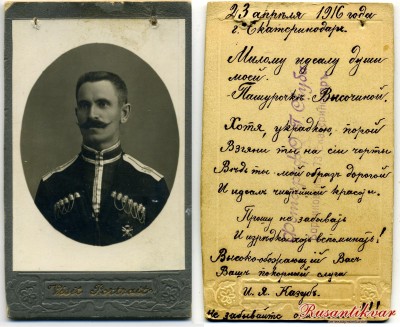 Visit Portrait
23 апрѣля 1916 года
г. Екатеринодаръ.
Милому идеалу души
моей.
Пашурочкѣ Высочиной.
Хотя, украдкою, порой
Взгляни ты на сіи черты
Вѣдь ты мой образъ дорогой
И идеалъ чистѣйшей красоты.
Прошу не забывать
И изрѣдка хоть вспоминать!
Высокообожающій Васъ
Вашъ покорный слуга
И. Я. Кагубъ.
Не забывайте !!!
Rusantikvar